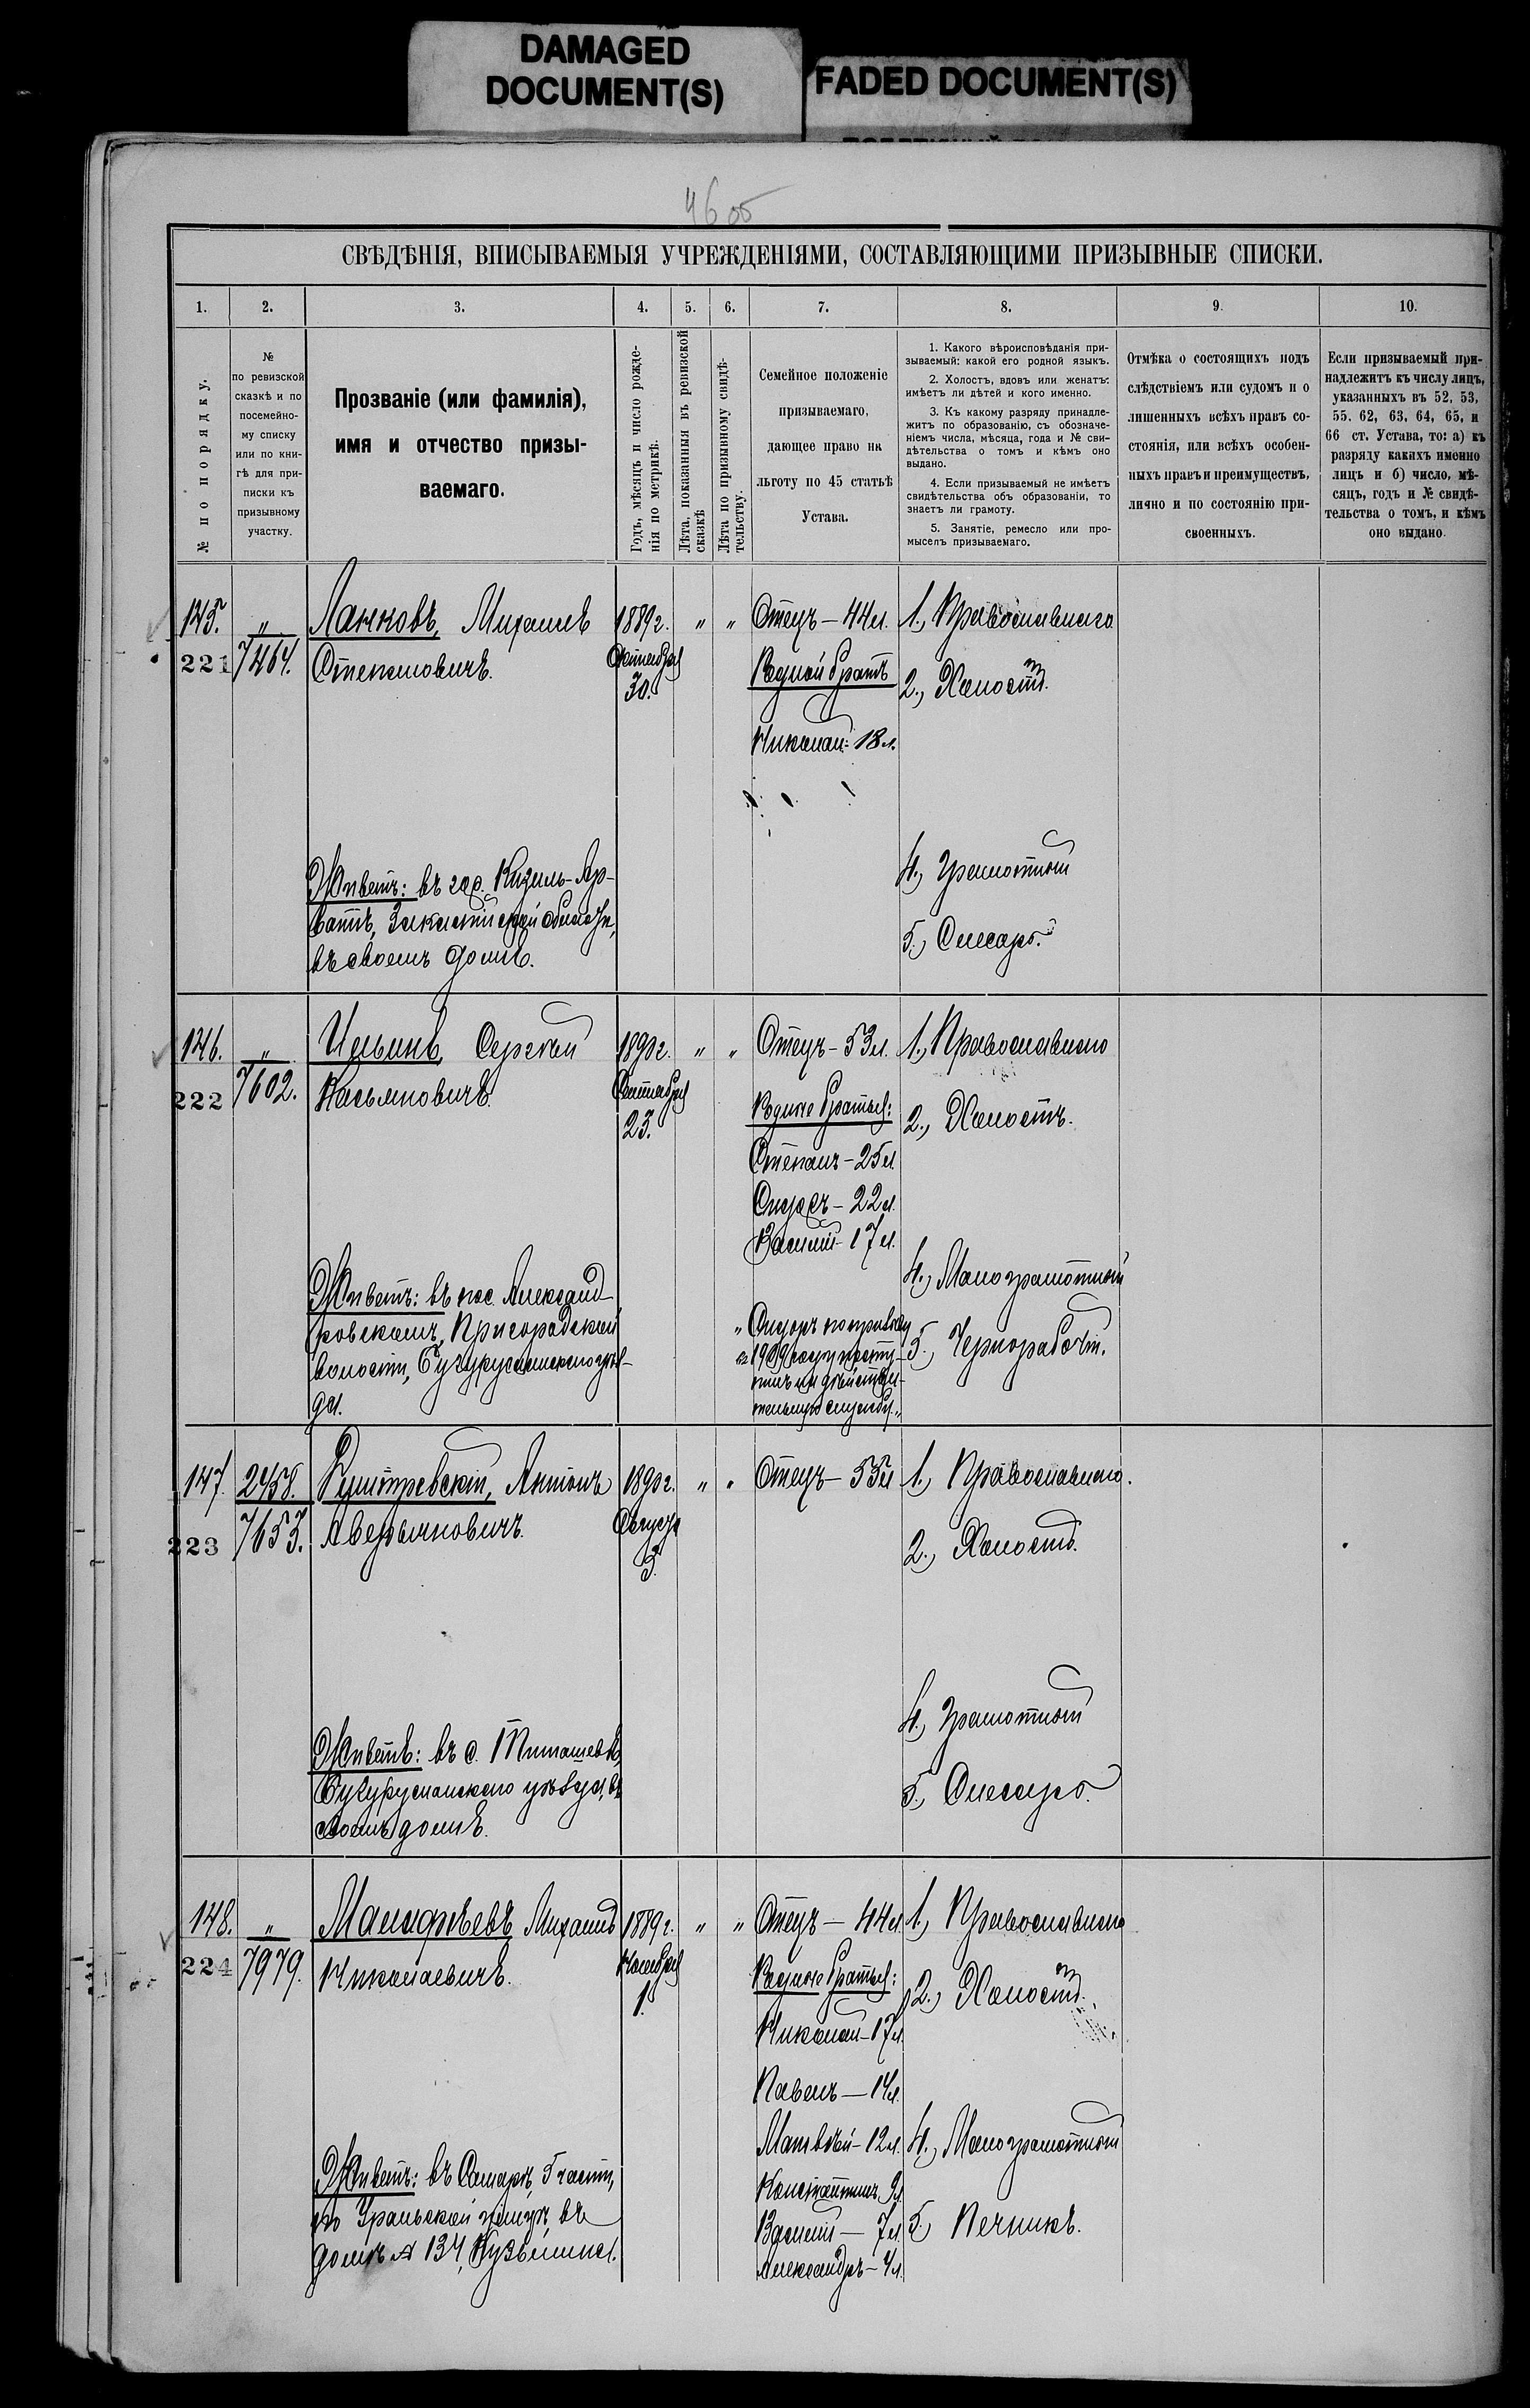 DAMAGED
DOCUMENT(S)
FADED DOCUMENT(S)
46 об
СВѢДѢНІЯ, ВПИСЫВАЕМЫЯ УЧРЕЖДЕНІЯМИ, СОСТАВЛЯЮЩИМИ ПРИЗЫВНЫЕ СПИСКИ.
1. 2. 3. 4. 5. 6. 7. 8. 9. 10.
№ по порядку.
№
по ревизской
сказкѣ и по
посемейно-
му списку
или по кни-
гѣ для при-
писки къ
призывному
участку.
Прозваніе (или фамилія),
имя и отчество призы-
ваемаго.
Годъ, мѣсяцъ и число рожде-
нія по метрикѣ.
Лѣта, показанныя въ ревизской
сказкѣ
Лѣта по призывному свидѣ-
тельству.
Семейное положеніе
призываемаго,
дающее право на
льготу по 45 статьѣ
Устава.
1. Какого вѣроисповѣданія при-
зываемый: какой его родной языкъ.
2. Холостъ, вдовъ или женатъ:
имѣетъ ли дѣтей и кого именно.
3. Къ какому разряду принадле-
житъ по образованію, съ обозначе-
ніемъ числа, мѣсяца, года и № сви-
дѣтельства о томъ и кѣмъ оно
выдано.
4. Если призываемый не имѣетъ
свидѣтельства объ образованіи, то
знаетъ ли грамоту.
5. Занятіе, ремесло или про-
мыселъ призываемаго.
Отмѣка о состоящихъ подъ
слѣдствіемъ или судомъ и о
лишенныхъ всѣхъ правъ со-
стоянія, или всѣхъ особен-
ныхъ правъ и преимуществъ,
лично и по состоянію при-
своенныхъ.
Если призываемый при-
надлежитъ къ числу лицъ,
указанныхъ въ 52, 53,
55. 62, 63, 64, 65, и
66 ст. Устава, то: а) къ
разряду какихъ именно
лицъ и б) число, мѣ-
сяцъ, годъ и № свидѣ-
тельства о томъ, и кѣмъ
оно выдано.
145. " Ланковъ, Михаилъ 1889г. " " Отецъ - 44 л. 1., Православнаго
221 7464. Степановичъ. 30. Родной братъ 2., Холостъ.
Николай: 18 л.
4., Грамотный
Живетъ: въ гор. Кизиль-Ар-
ватъ, Закаспійской области,
въ своемъ домѣ.
5., Слесарь.
146. " Ильинъ, Сергѣй 1890г. " " Отецъ - 53 л. 1., Православнаго
222 7602. Касьяновичъ. Сентября 23. Родные братья: 2., Холостъ.
Степанъ - 25 л.
Сидоръ - 22 л.
Василій - 17 л.
Живетъ: въ пос. Александ-
ровскомъ, Пригородской
волости, Бугурусланскаго уѣз-
да.
"Сидоръ по призыву
въ 1909 году посту-
пилъ на дѣйстви-
тельную службу."
4., Малограмотный
5., Чернорабочій.
147. 2458. Антонъ 1890г. " " Отецъ - 55 л. 1., Православнаго.
223 7653. Аверьяновичъ. Августа 5. 2., Холостъ.
4., Грамотный
Живетъ: въ с.
Бугурусланскаго уѣзда, въ
своемъ домѣ.
5., Слесарь.
148. " Малафѣевъ, Михаилъ 1889г. " " Отецъ - 44 л. 1., Православнаго
224 7979. Николаевичъ. Ноября 1. Родные братья: 2., Холостъ.
Николай - 17 л.
Павелъ - 14 л.
Матвѣй - 12 л. 4., Малограмотный
Константинъ 9 л.
Василій - 7 л. 5., Печникъ.
Александръ - 4 л.
Живетъ: въ Самарѣ, 5 части,
по Уральской улицѣ, въ
домѣ № 134, Кузьмина.